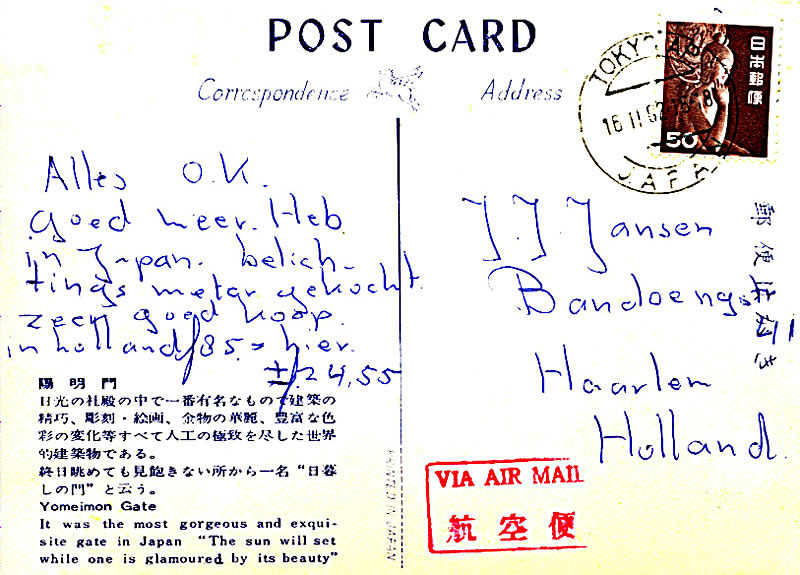 POST CARD
Correspondence Address
TOKYO
16 II 62
JAPAN
日本郵便
50
郵便はがき
Alles O.K.
goed weer. Heb
in Japan. belich-
tings meter gekocht.
zeer goed koop.
in holland f 85.= hier.
± f 24,55
J.J. Jansen
Bandoengstr
Haarlem
Holland.
陽明門
日光の社殿の中で一番有名なもので建築の
精巧、彫刻・絵画、金物の華麗、豊富な色
彩の変化等すべて人工の極致を尽した世界
的建築物である。
終日眺めても見飽きない所から一名“日暮
しの門”と云う。
Yomeimon Gate
It was the most gorgeous and exqui-
site gate in Japan "The sun will set
while one is glamoured by its beauty"
PRINTED IN JAPAN
VIA AIR MAIL
航空便